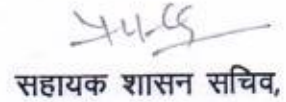 सहायक शासन सचिव,